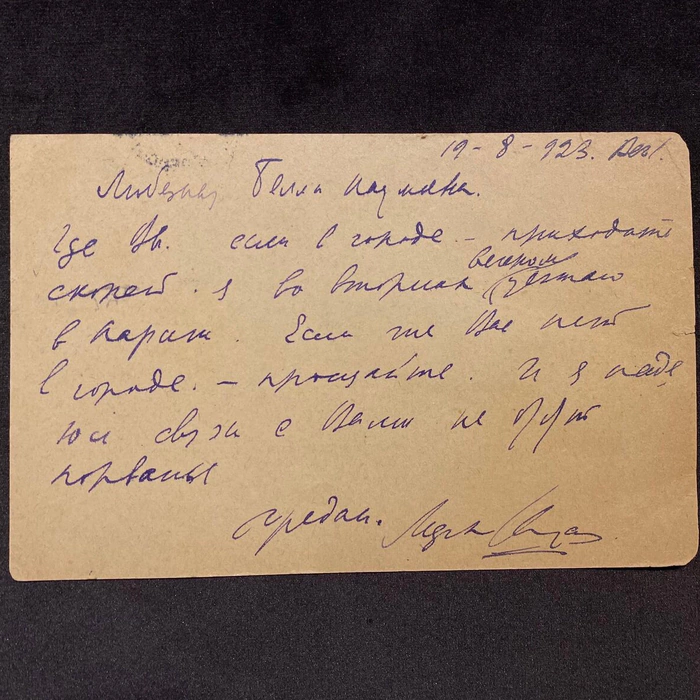 19 - 8 - 923.
Любезная Белла Наумовна.
Где Вы. если в городе – приходите
скорей. я во вторник вечером уезжаю
в Париж. Если же Вас нет
в городе. – прощайте. И я наде
юсь связи с Вами не будут
порваны
предан.